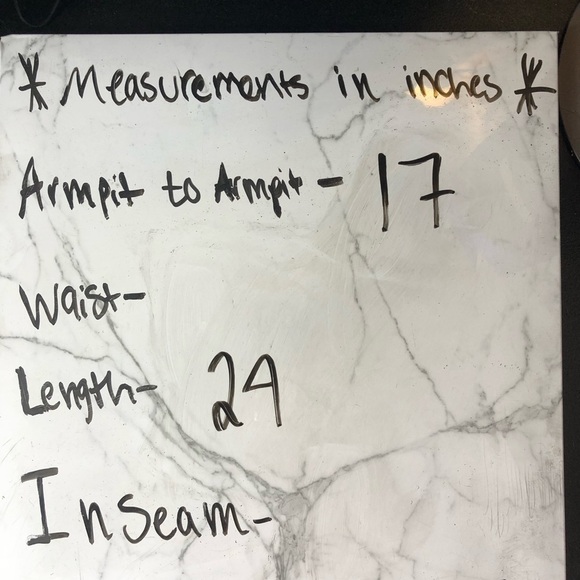 * Measurements in inches *
Armpit to Armpit - 17
Waist-
Length- 24
Inseam-